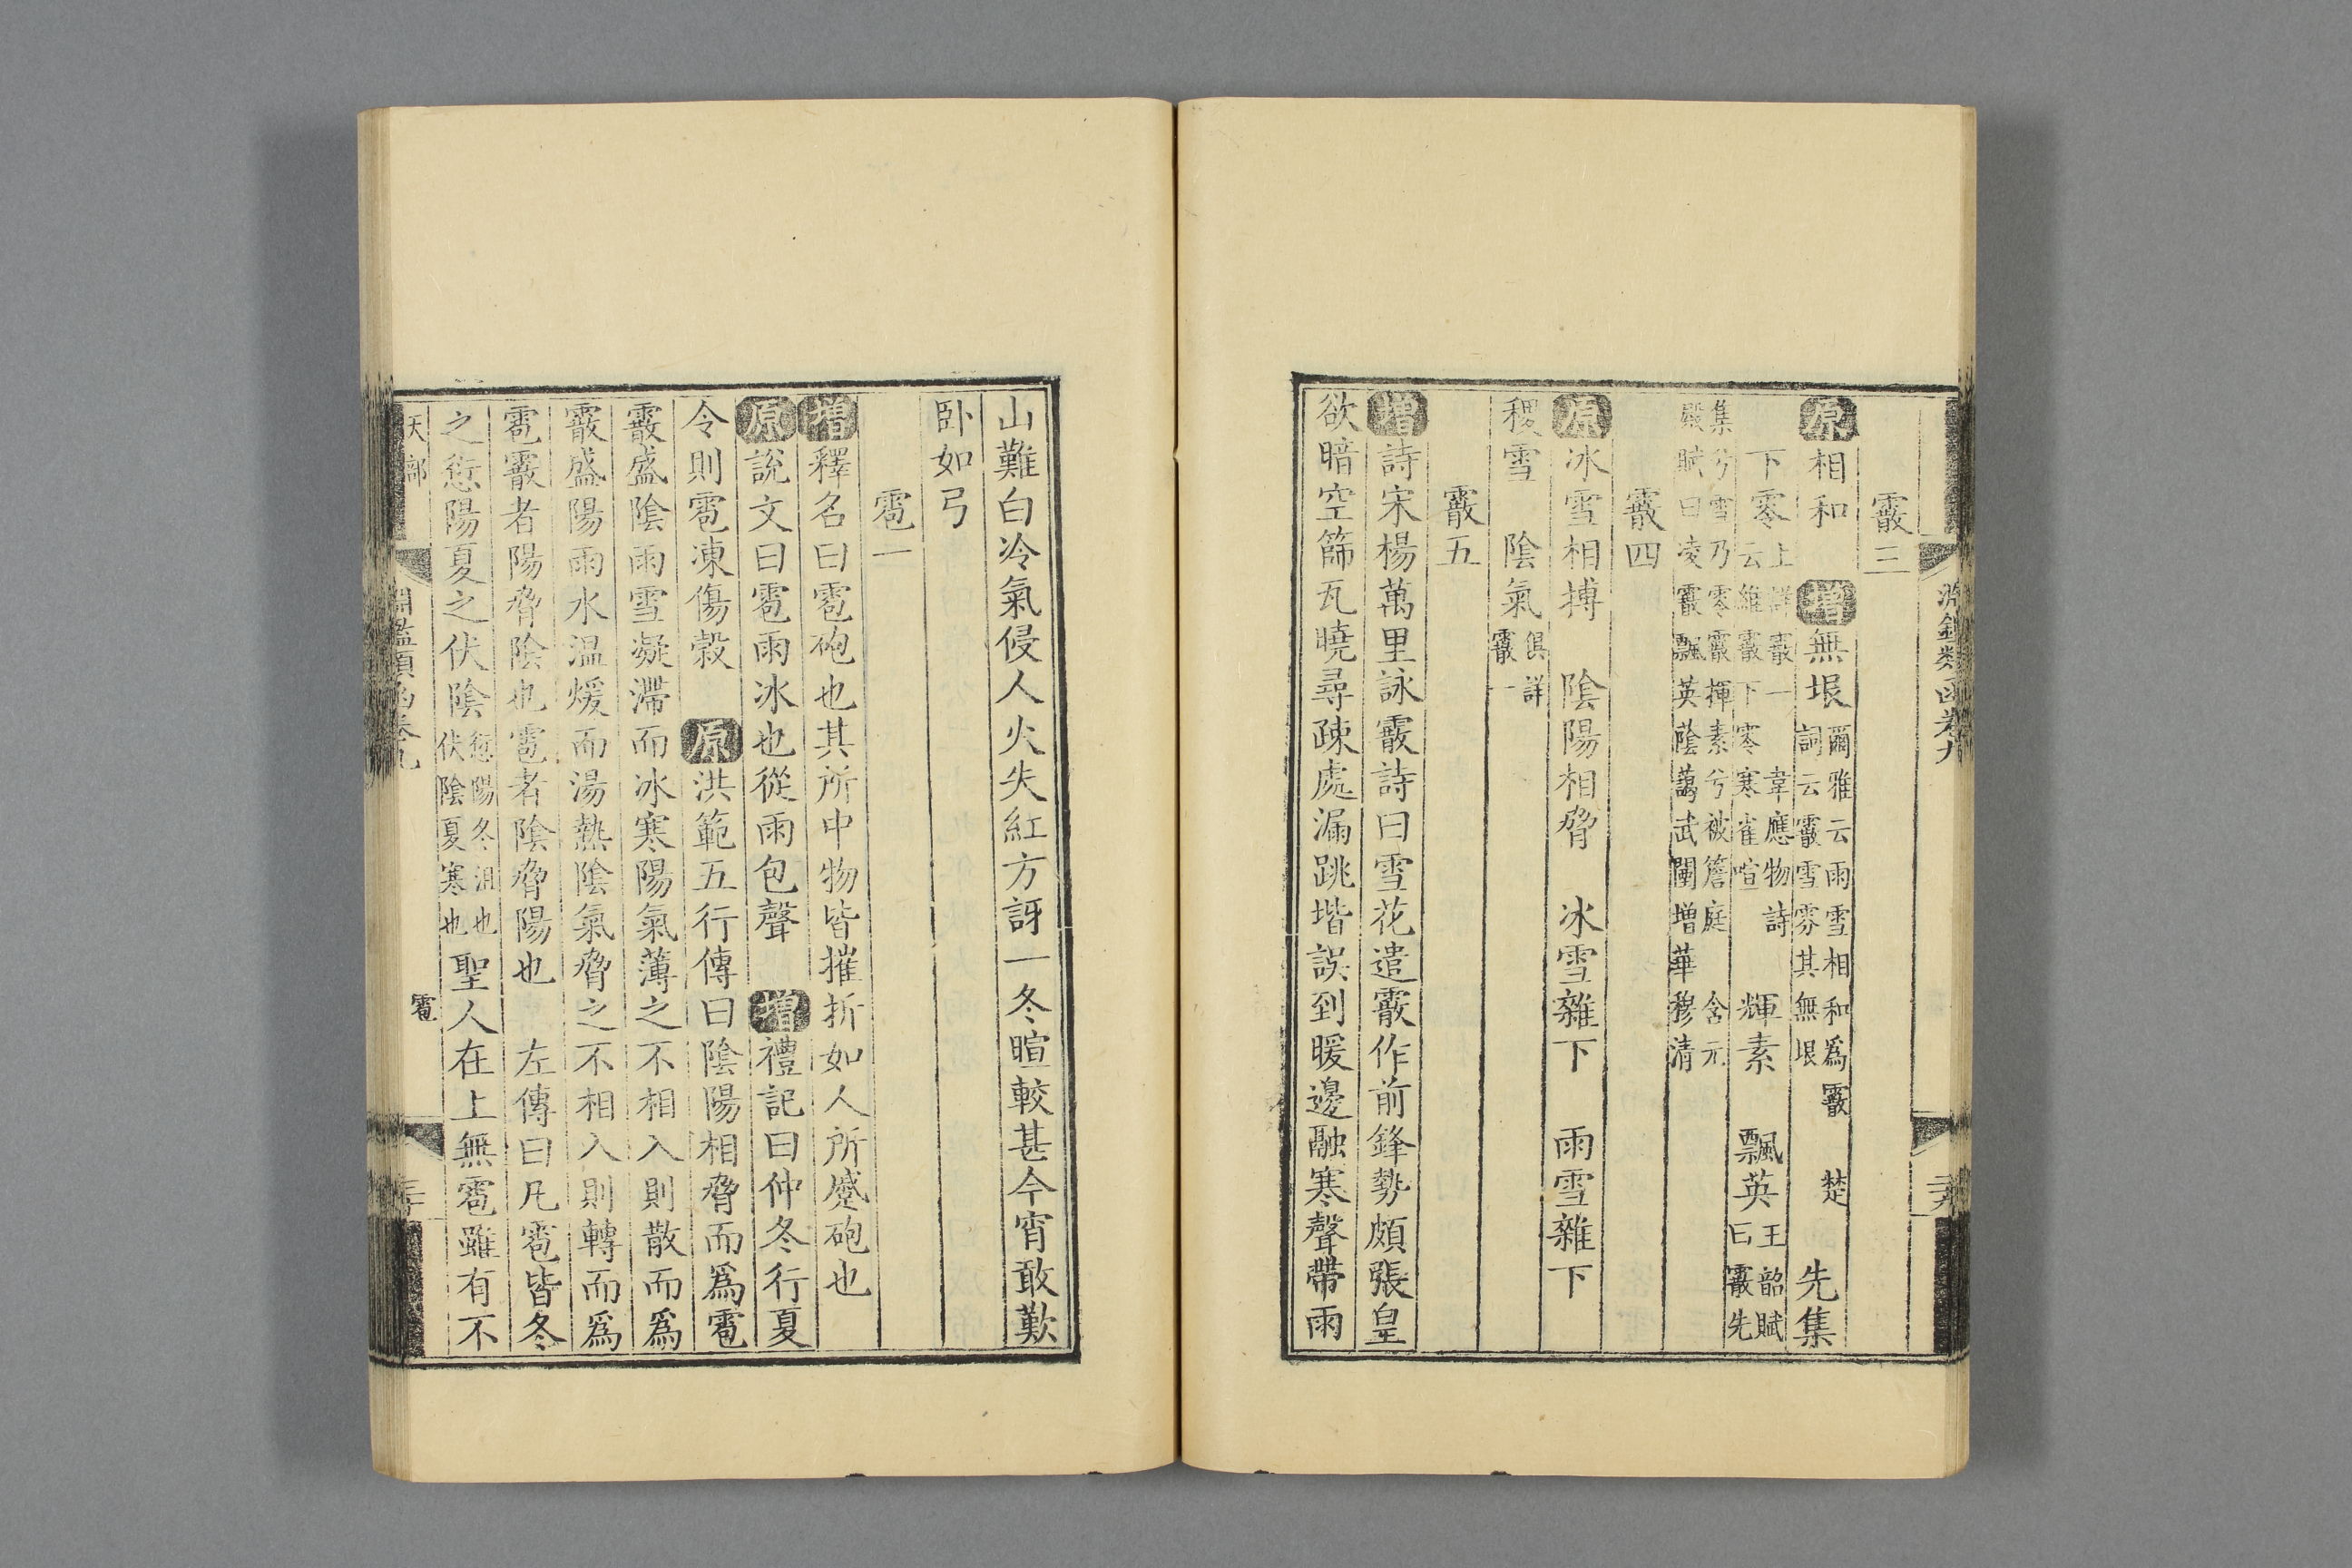 淵鑑類函卷九
霰三
原相和 增無垠爾雅云雨雪相和爲霰 楚詞云霰雪雰其無垠 先集
下零上詳霰一 韋應物詩云維霰下零寒雀喧 輝素 飄英王韶賦曰霰先
集兮雪乃零霰揮素兮被簷庭 含元殿賦曰凌霰飄英蔭藹武闈增華穆清
霰四
原冰雪相搏 陰陽相脅 冰雪雜下 雨雪雜下
稷雪 陰氣俱詳霰一
霰五
增詩宋楊萬里詠霰詩曰雪花遣霰作前鋒勢頗張皇
欲暗空篩瓦曉尋疎處漏跳堦誤到暖邊融寒聲帶雨
山難白冷氣侵人火失紅方訝一冬暄較甚今宵敢歎
卧如弓
雹一
增釋名曰雹砲也其所中物皆摧折如人所蹙砲也
原說文曰雹雨冰也從雨包聲 增禮記曰仲冬行夏
令則雹凍傷穀 原洪範五行傳曰陰陽相脅而爲雹
霰盛陰雨雪凝滯而冰寒陽氣薄之不相入則散而爲
霰盛陽雨水温煖而湯熱陰氣脅之不相入則轉而爲
雹霰者陽脅陰也雹者陰脅陽也 左傳曰凡雹皆冬
之愆陽夏之伏陰愆陽冬沮也伏陰夏寒也聖人在上無雹雖有不
天部 淵鑑類函卷九 雹 三十